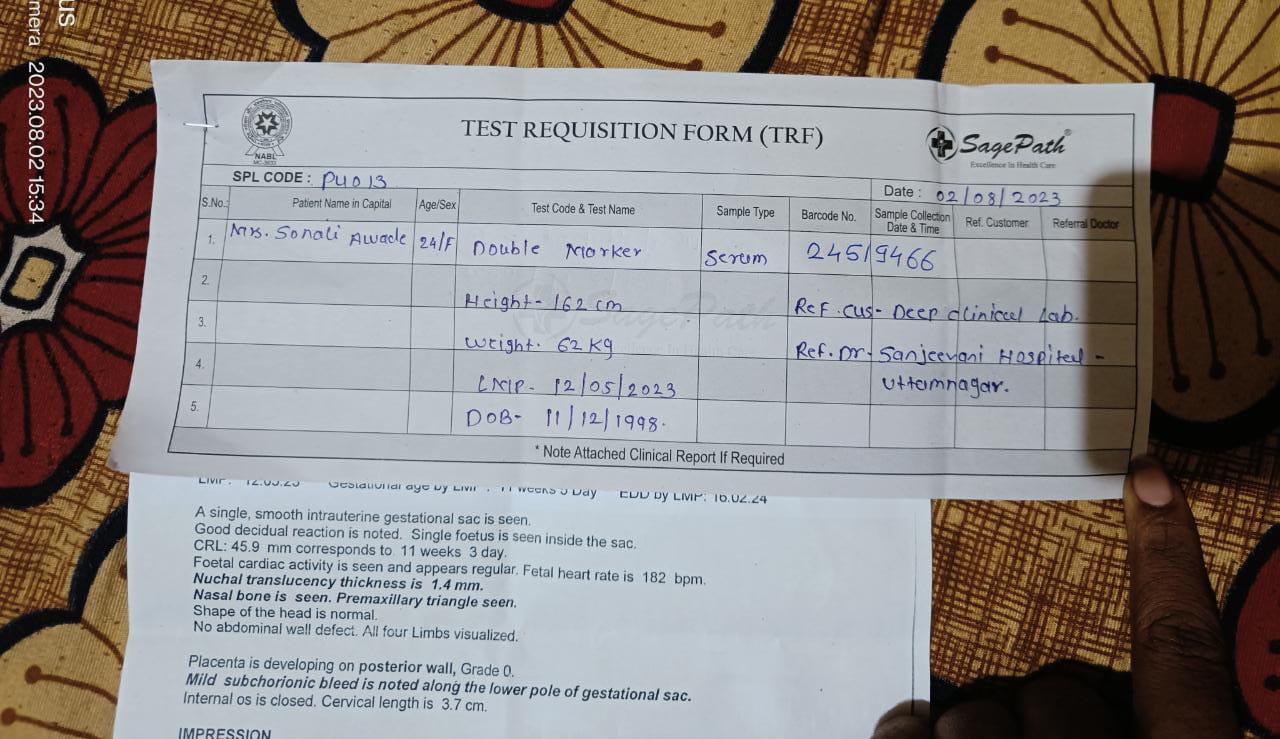 us
mera 2023.08.02 15:34
NABL
TEST REQUISITION FORM (TRF)
SagePath
Excellence In Health Care
SPL CODE : P4013
Date : 02/08/2023
S.No. Patient Name in Capital Age/Sex Test Code & Test Name Sample Type Barcode No. Sample Collection Date & Time Ref. Customer Referral Doctor
1. Mrs. Sonali Awade 24/F Double Marker Serum 24519466
2.
Height- 162 cm Ref. cus- Deep clinical Lab.
3.
Weight. 62 Kg Ref. Dr. Sanjeevani Hospital -
4.
LMP- 12/05/2023 Uttamnagar.
5.
DOB- 11/12/1998.
* Note Attached Clinical Report If Required
LMP: 12.05.23 Gestational age by LMP : 11 weeks 5 Day EDD by LMP: 16.02.24
A single, smooth intrauterine gestational sac is seen.
Good decidual reaction is noted. Single foetus is seen inside the sac.
CRL: 45.9 mm corresponds to 11 weeks 3 day.
Foetal cardiac activity is seen and appears regular. Fetal heart rate is 182 bpm.
Nuchal translucency thickness is 1.4 mm.
Nasal bone is seen. Premaxillary triangle seen.
Shape of the head is normal.
No abdominal wall defect. All four Limbs visualized.
Placenta is developing on posterior wall, Grade 0.
Mild subchorionic bleed is noted along the lower pole of gestational sac.
Internal os is closed. Cervical length is 3.7 cm.
IMPRESSION